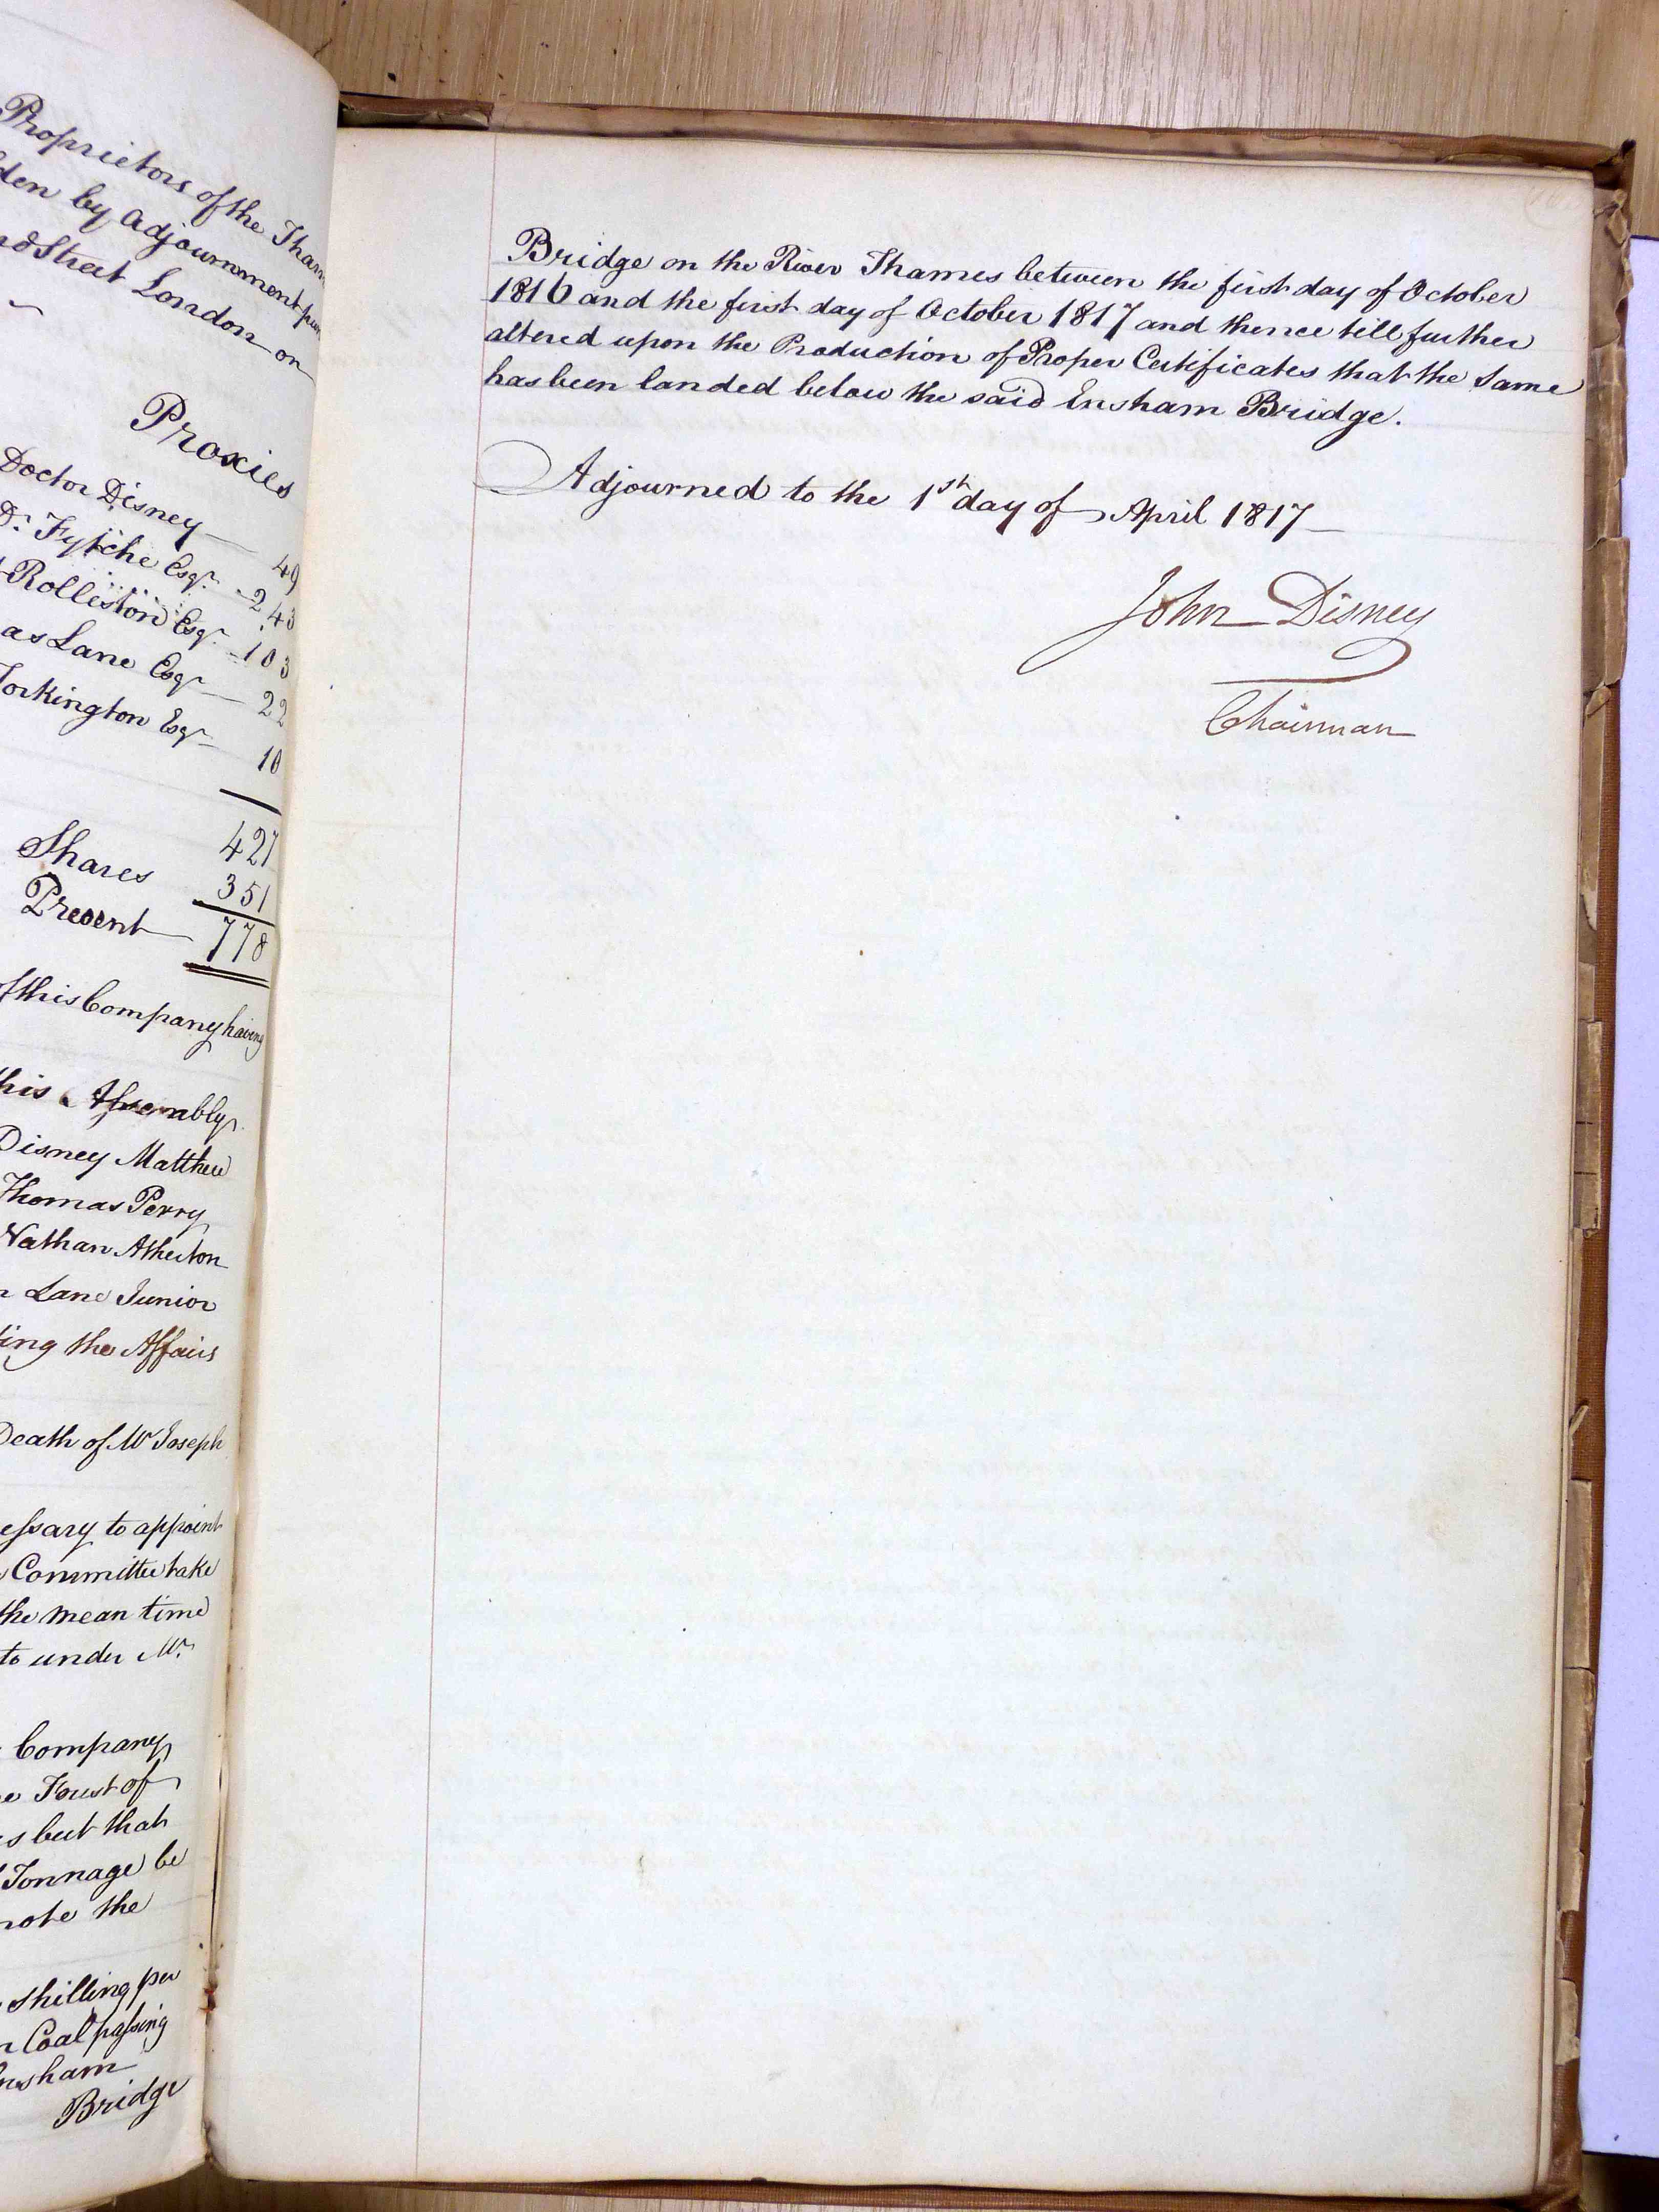 Proprietors of the Tham
den by Adjournment pur
nd Street London on
Proxies
Doctor Disney 49
D. Fytche Esqr. 243
Rolleston Esqr. 103
as Lane Esqr 22
Torkington Esqr 10
427
Shares 351
Present 778
of this Company having
this Assembly
Disney Matthew
Thomas Perry
Nathan Atherton
n Lane Junior
ting the Affairs
Death of Mr Joseph
essary to appoint
Committee take
the mean time
to under Mr.
Company
e Trust of
s but that
Tonnage be
note the
shilling per
n Coal passing
nsham
Bridge
Bridge on the River Thames between the first day of October
1816 and the first day of October 1817 and thence till further
altered upon the Production of Proper Certificates that the same
has been landed below the said Ensham Bridge.
Adjourned to the 1st day of April 1817
John Disney
Chairman